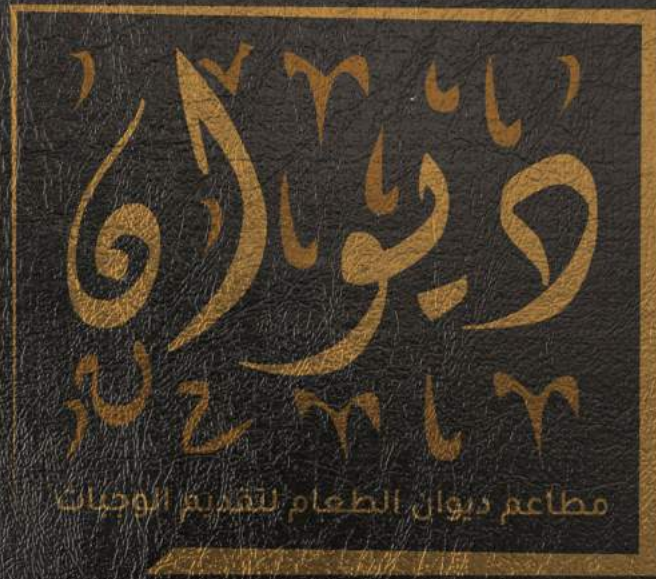 ديوان
مطاعم ديوان الطعام لتقديم الوجبات